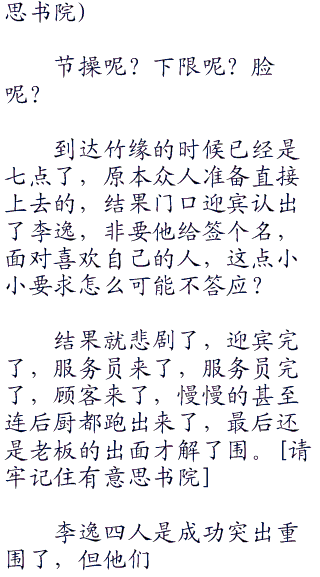 思书院）
节操呢？下限呢？脸
呢？
到达竹缘的时候已经是
七点了，原本众人准备直接
上去的，结果门口迎宾认出
了李逸，非要他给签个名，
面对喜欢自己的人，这点小
小要求怎么可能不答应？
结果就悲剧了，迎宾完
了，服务员来了，服务员完
了，顾客来了，慢慢的甚至
连后厨都跑出来了，最后还
是老板的出面才解了围。[请
牢记住有意思书院]
李逸四人是成功突出重
围了，但他们